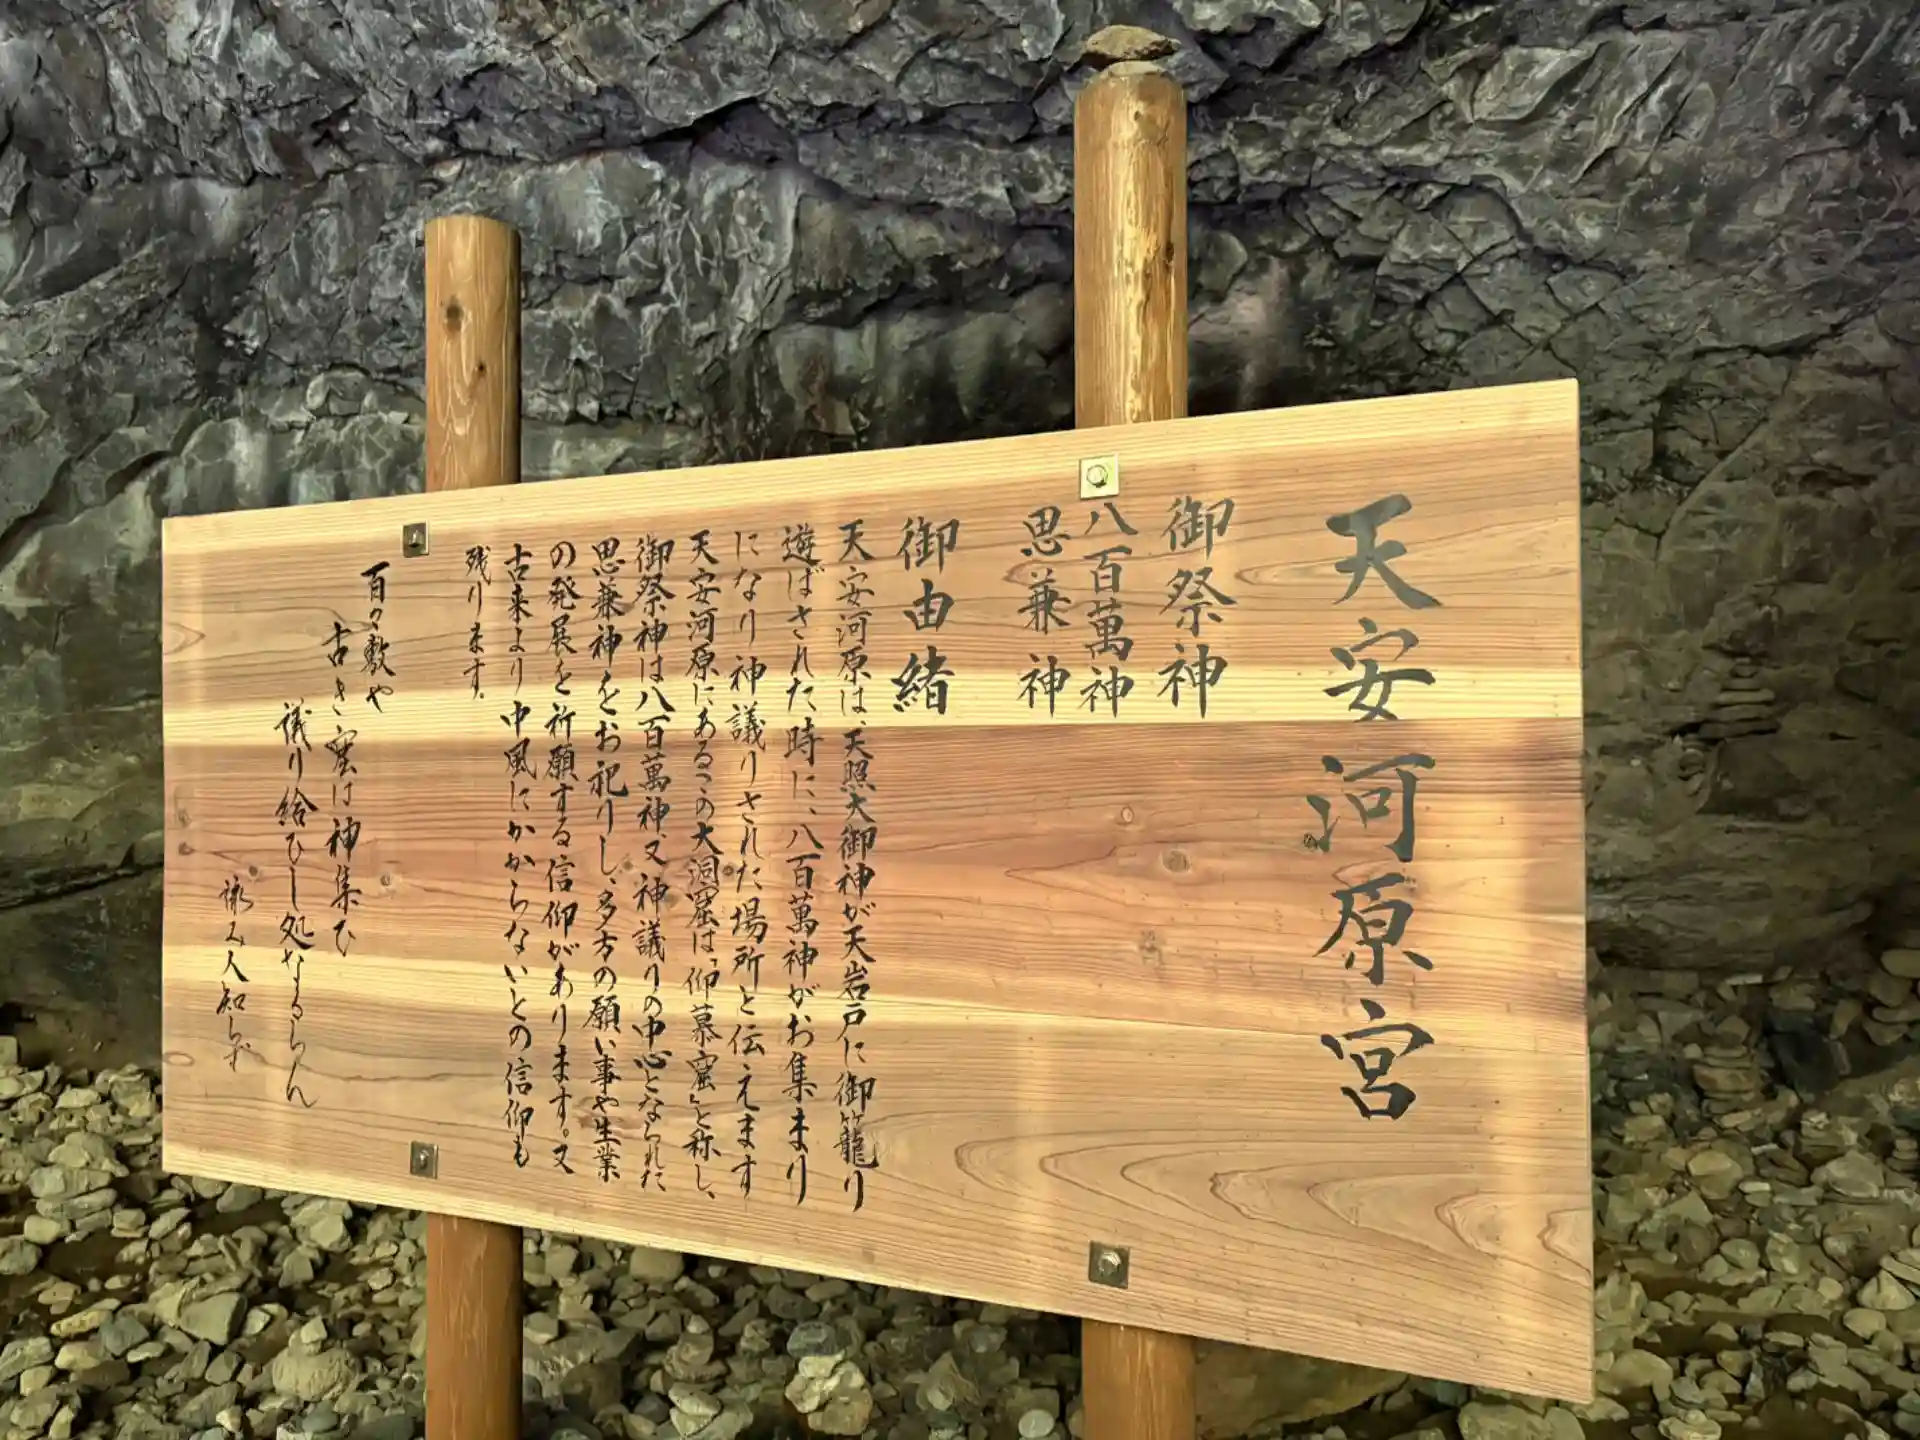 天安河原宮
御祭神
八百萬神
思兼神
御由緒
天安河原は、天照大御神が天岩戸に御籠り
遊ばされた時に、八百萬神がお集まり
になり神議りされた場所と伝えます
天安河原にあるこの大洞窟は「仰慕窟」と称し、
御祭神は八百萬神、又神議りの中心となられた
思兼神をお祀りし、多方の願い事や生業
の発展を祈願する信仰があります。又
古来より中風にかからないとの信仰も
残ります。
百々敷や
古き窟は神集ひ
議り給ひし処なるらん
詠み人知らず